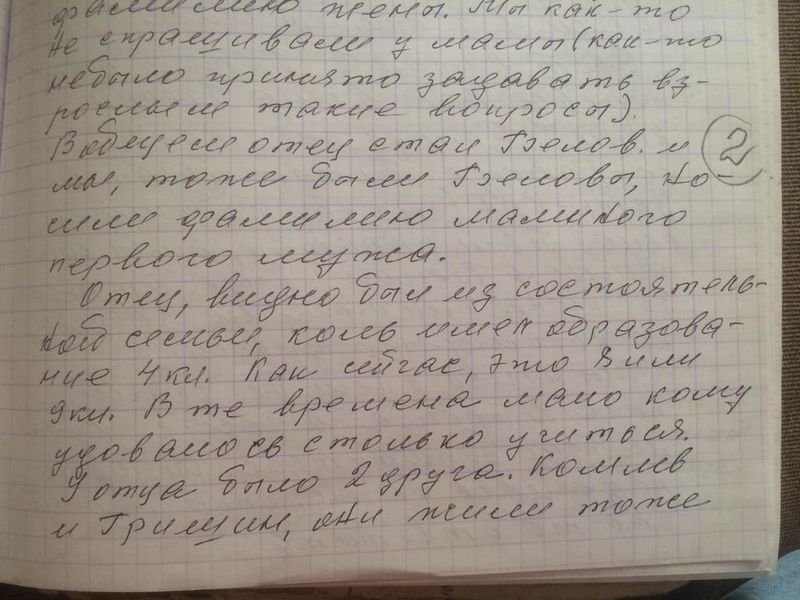 фамилию жены. Мы как-то
не спрашивали у мамы (как-то
небыло принято задавать вз-
рослым такие вопросы).
Вобщем отец стал Белов. и
2
мы, тоже были Беловы, но-
сили фамилию маминого
первого мужа.
Отец, видно был из состоятель-
ной семьи, коль имел образова-
ние 4 кл. Как сейчас, это 8 или
9 кл. В те времена мало кому
удовалось столько учиться.
У отца было 2 друга. Комлев
и Гришин, они жили тоже